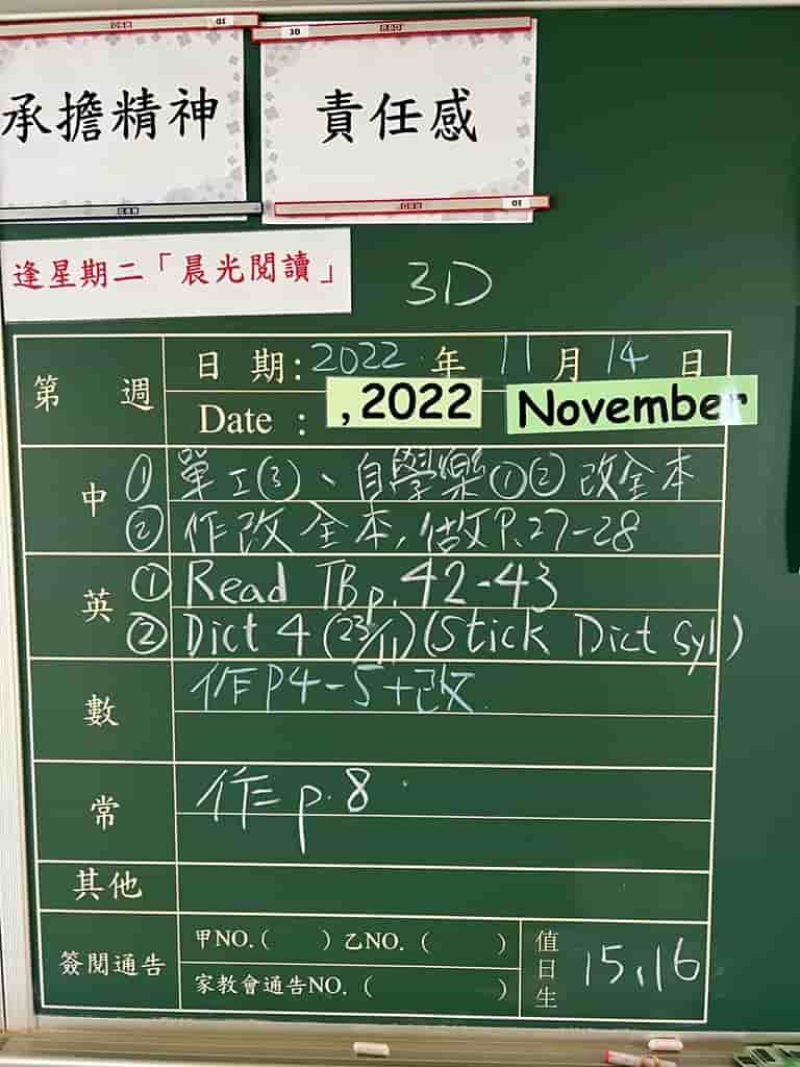 承擔精神
責任感
逢星期二「晨光閱讀」
3D
第 週
日 期: 2022 年 11 月 14 日
Date : , 2022 November
中 ① 單工(3)、自學樂①② 改全本
② 作改全本, 做P.27-28
英 ① Read TB p. 42-43
② Dict 4 (23/11) (Stick Dict Syl)
數 作P4-5+改
常 作 p.8
其他
簽閱通告 甲NO. ( ) 乙NO. ( )
家教會通告NO. ( )
值日生 15, 16